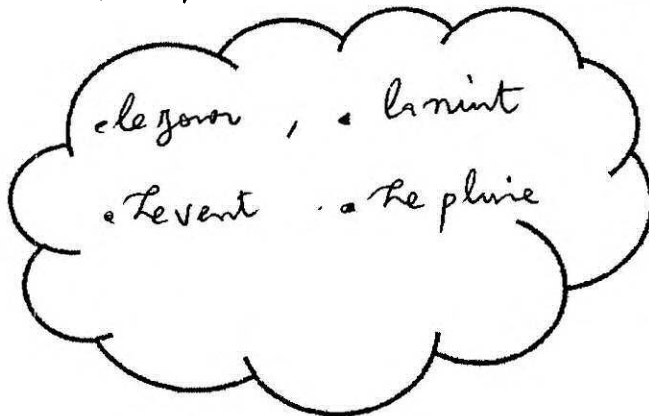 • le zour , • la nuit
• Le vent . • Le pluie